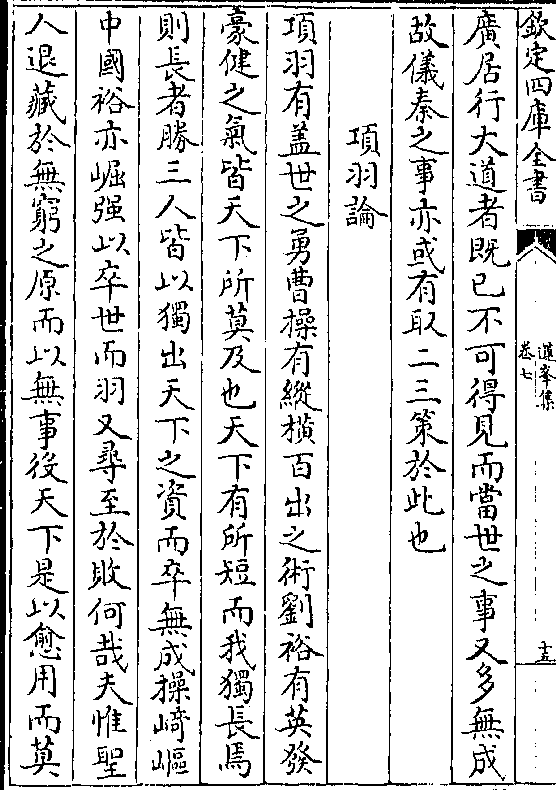 欽定四庫全書
蓮峯集
卷七
十五
廣居行大道者既已不可得見而當世之事又多無成
故儀秦之事亦或有取二三策於此也
項羽論
項羽有蓋世之勇曹操有縱橫百出之術劉裕有英發
豪健之氣皆天下所莫及也天下有所短而我獨長焉
則長者勝三人皆以獨出天下之資而卒無成操崎嶇
中國裕亦崛强以卒世而羽又尋至於敗何哉夫惟聖
人退藏於無窮之原而以無事後天下是以愈用而莫